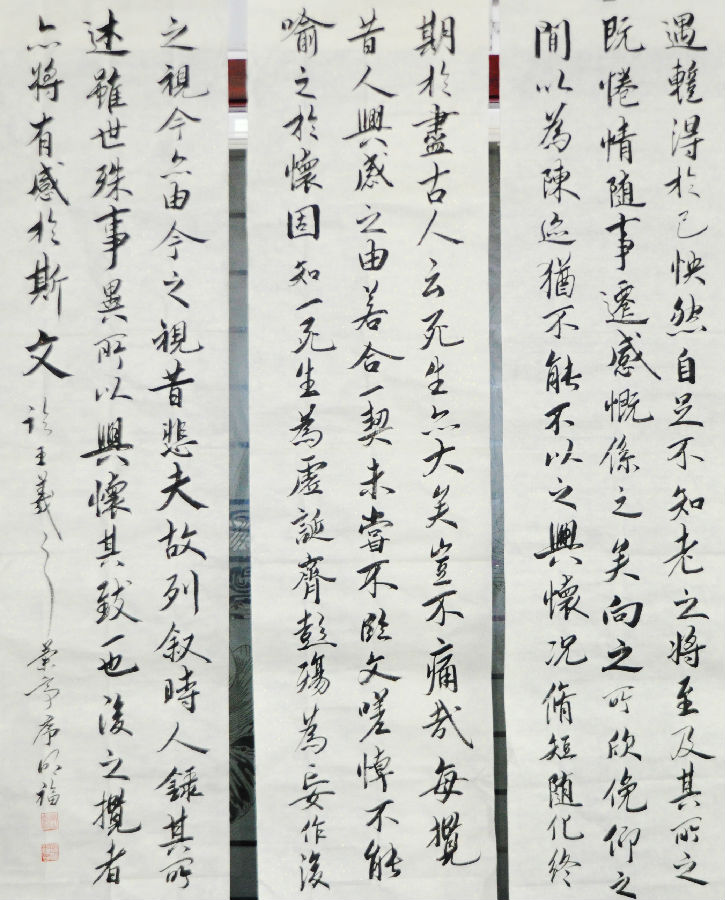 遇蹔得於己怏然自足不知老之將至及其所之
既惓情随事遷感慨係之矣向之所欣俛仰之
間以為陳迹猶不能不以之興懷况脩短随化終
期於盡古人云死生亦大矣豈不痛哉每攬
昔人興感之由若合一契未嘗不臨文嗟悼不能
喻之於懷固知一死生為虛誕齊彭殤為妄作後
之視今亦由今之視昔悲夫故列叙時人錄其所
述雖世殊事異所以興懷其致一也後之攬者
亦將有感於斯文
臨王羲之蘭亭序 福